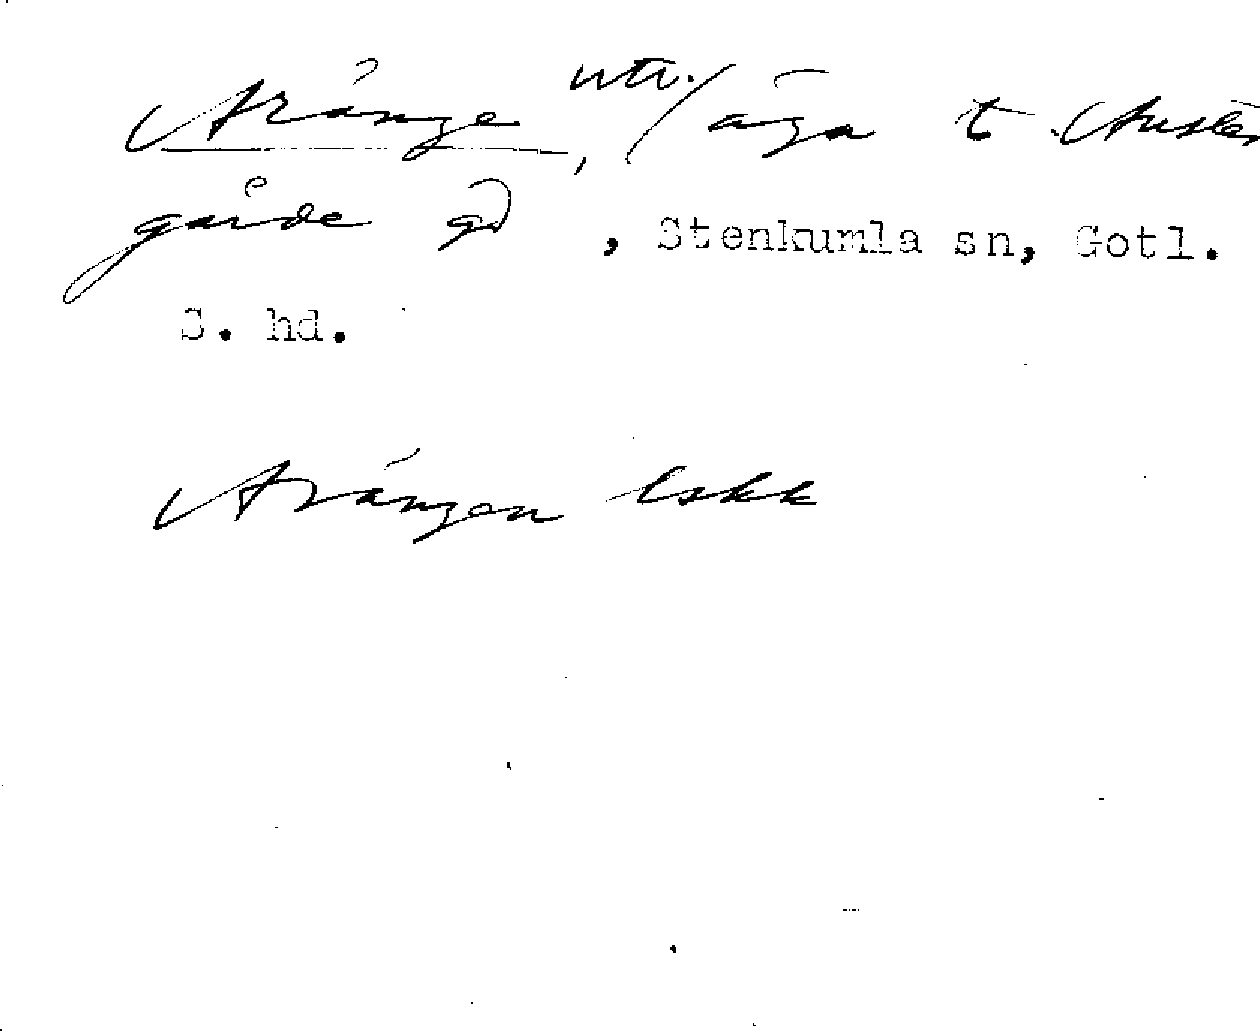 Arånge, utr./ äga t. Auster
gårde gd, Stenkumla sn, Gotl.
S. hd.
Arängen lskk